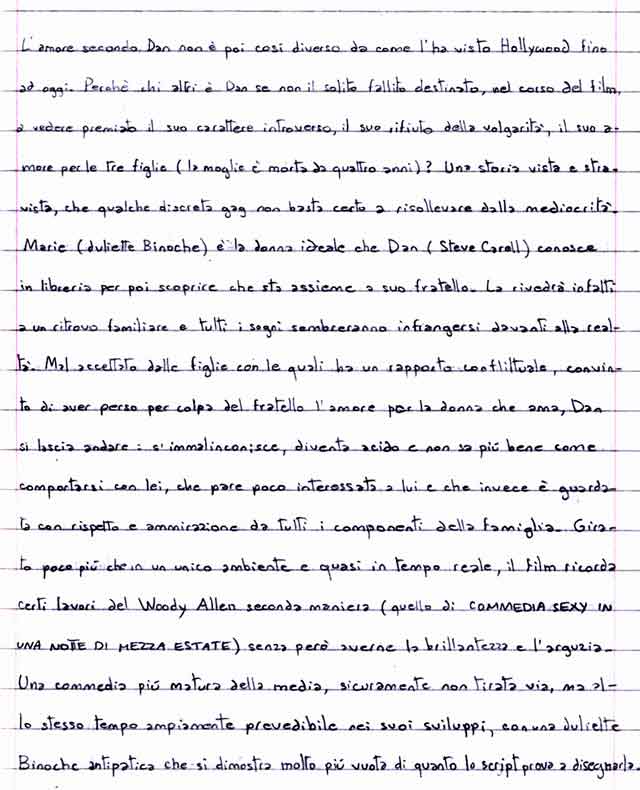 L'amore secondo Dan non è poi così diverso da come l'ha visto Hollywood fino
ad oggi. Perchè chi altri è Dan se non il solito fallito destinato, nel corso del film,
a vedere premiato il suo carattere introverso, il suo rifiuto della volgarità, il suo a-
more per le tre figlie (la moglie è morta da quattro anni)? Una storia vista e stra-
vista, che qualche discreta gag non basta certo a risollevare dalla mediocrità.
Marie (Juliette Binoche) è la donna ideale che Dan (Steve Carell) conosce
in libreria per poi scoprire che sta assieme a suo fratello. La rivedrà infatti
a un ritrovo familiare e tutti i sogni sembreranno infrangersi davanti alla real-
tà. Mal accettato dalle figlie con le quali ha un rapporto conflittuale, convin-
to di aver perso per colpa del fratello l'amore per la donna che ama, Dan
si lascia andare: s'immalinconisce, diventa acido e non sa più bene come
comportarsi con lei, che pare poco interessata a lui e che invece è guarda-
ta con rispetto e ammirazione da tutti i componenti della famiglia. Gira-
to poco più che in un unico ambiente e quasi in tempo reale, il film ricorda
certi lavori del Woody Allen seconda maniera (quello di COMMEDIA SEXY IN
UNA NOTTE DI MEZZA ESTATE) senza però averne la brillantezza e l'arguzia.
Una commedia più matura della media, sicuramente non tirata via, ma al-
lo stesso tempo ampiamente prevedibile nei suoi sviluppi, con una Juliette
Binoche antipatica che si dimostra molto più vuota di quanto lo script prova a disegnarla.